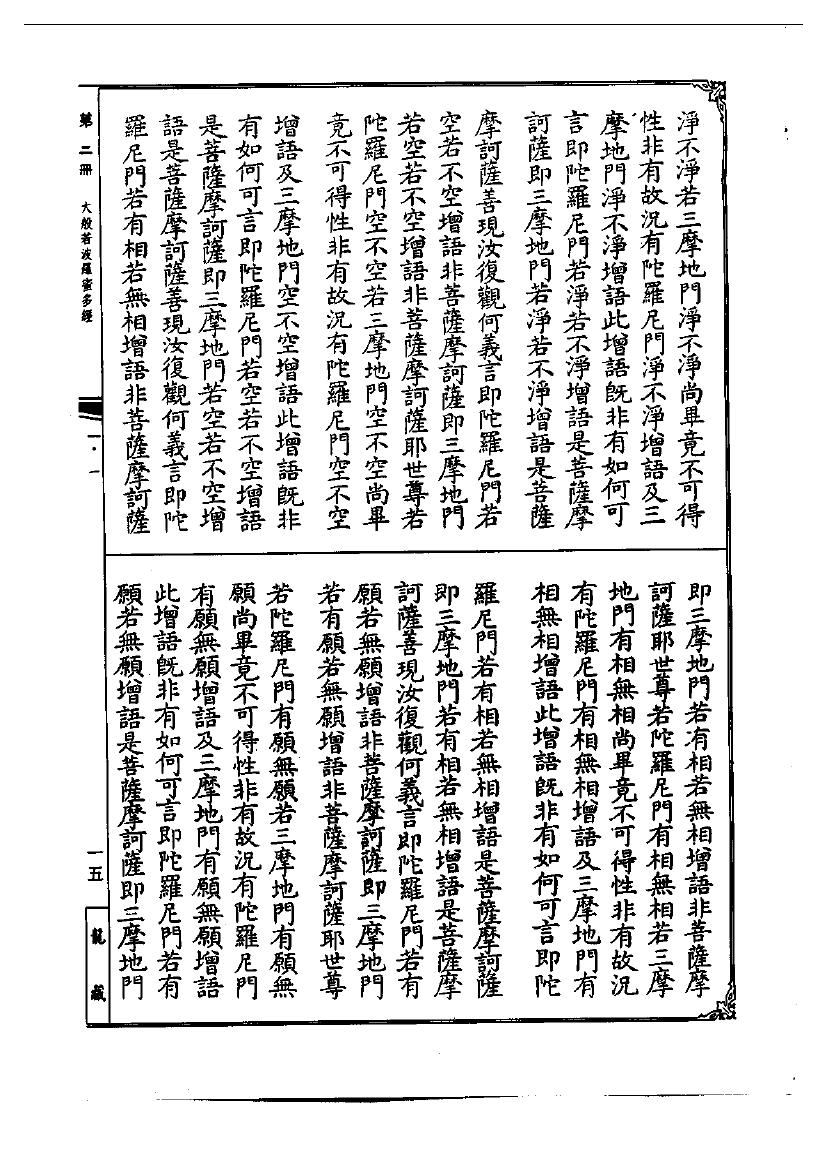 淨不淨若三摩地門淨不淨尚畢竟不可得
性非有故況有陀羅尼門淨不淨增語及三
摩地門淨不淨增語此增語旣非有如何可
言即陀羅尼門若淨若不淨增語是菩薩摩
訶薩即三摩地門若淨若不淨增語是菩薩
摩訶薩善現汝復觀何義言即陀羅尼門若
空若不空增語非菩薩摩訶薩即三摩地門
若空若不空增語非菩薩摩訶薩耶世尊若
陀羅尼門空不空若三摩地門空不空尚畢
竟不可得性非有故況有陀羅尼門空不空
增語及三摩地門空不空增語此增語旣非
有如何可言即陀羅尼門若空若不空增語
是菩薩摩訶薩即三摩地門若空若不空增
語是菩薩摩訶薩善現汝復觀何義言即陀
羅尼門若有相若無相增語非菩薩摩訶薩
即三摩地門若有相若無相增語非菩薩摩
訶薩耶世尊若陀羅尼門有相無相若三摩
地門有相無相尚畢竟不可得性非有故況
有陀羅尼門有相無相增語及三摩地門有
相無相增語此增語旣非有如何可言即陀
羅尼門若有相若無相增語是菩薩摩訶薩
即三摩地門若有相若無相增語是菩薩摩
訶薩善現汝復觀何義言即陀羅尼門若有
願若無願增語非菩薩摩訶薩即三摩地門
若有願若無願增語非菩薩摩訶薩耶世尊
若陀羅尼門有願無願若三摩地門有願無
願尚畢竟不可得性非有故況有陀羅尼門
有願無願增語及三摩地門有願無願增語
此增語旣非有如何可言即陀羅尼門若有
願若無願增語是菩薩摩訶薩即三摩地門
第二冊 大般若波羅蜜多經
一·一
一五
龍藏